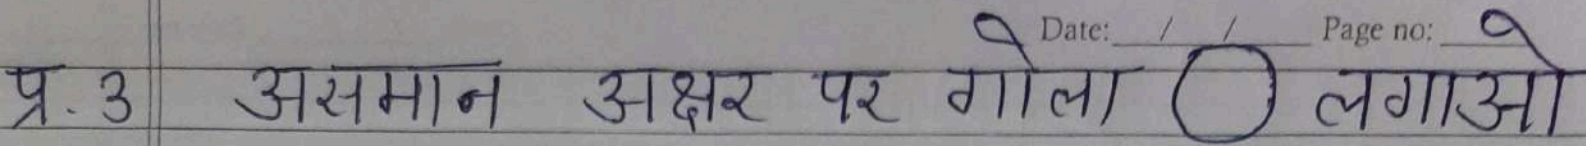 Date: / / Page no:
प्र. 3 असमान अक्षर पर गोला ◯ लगाओ